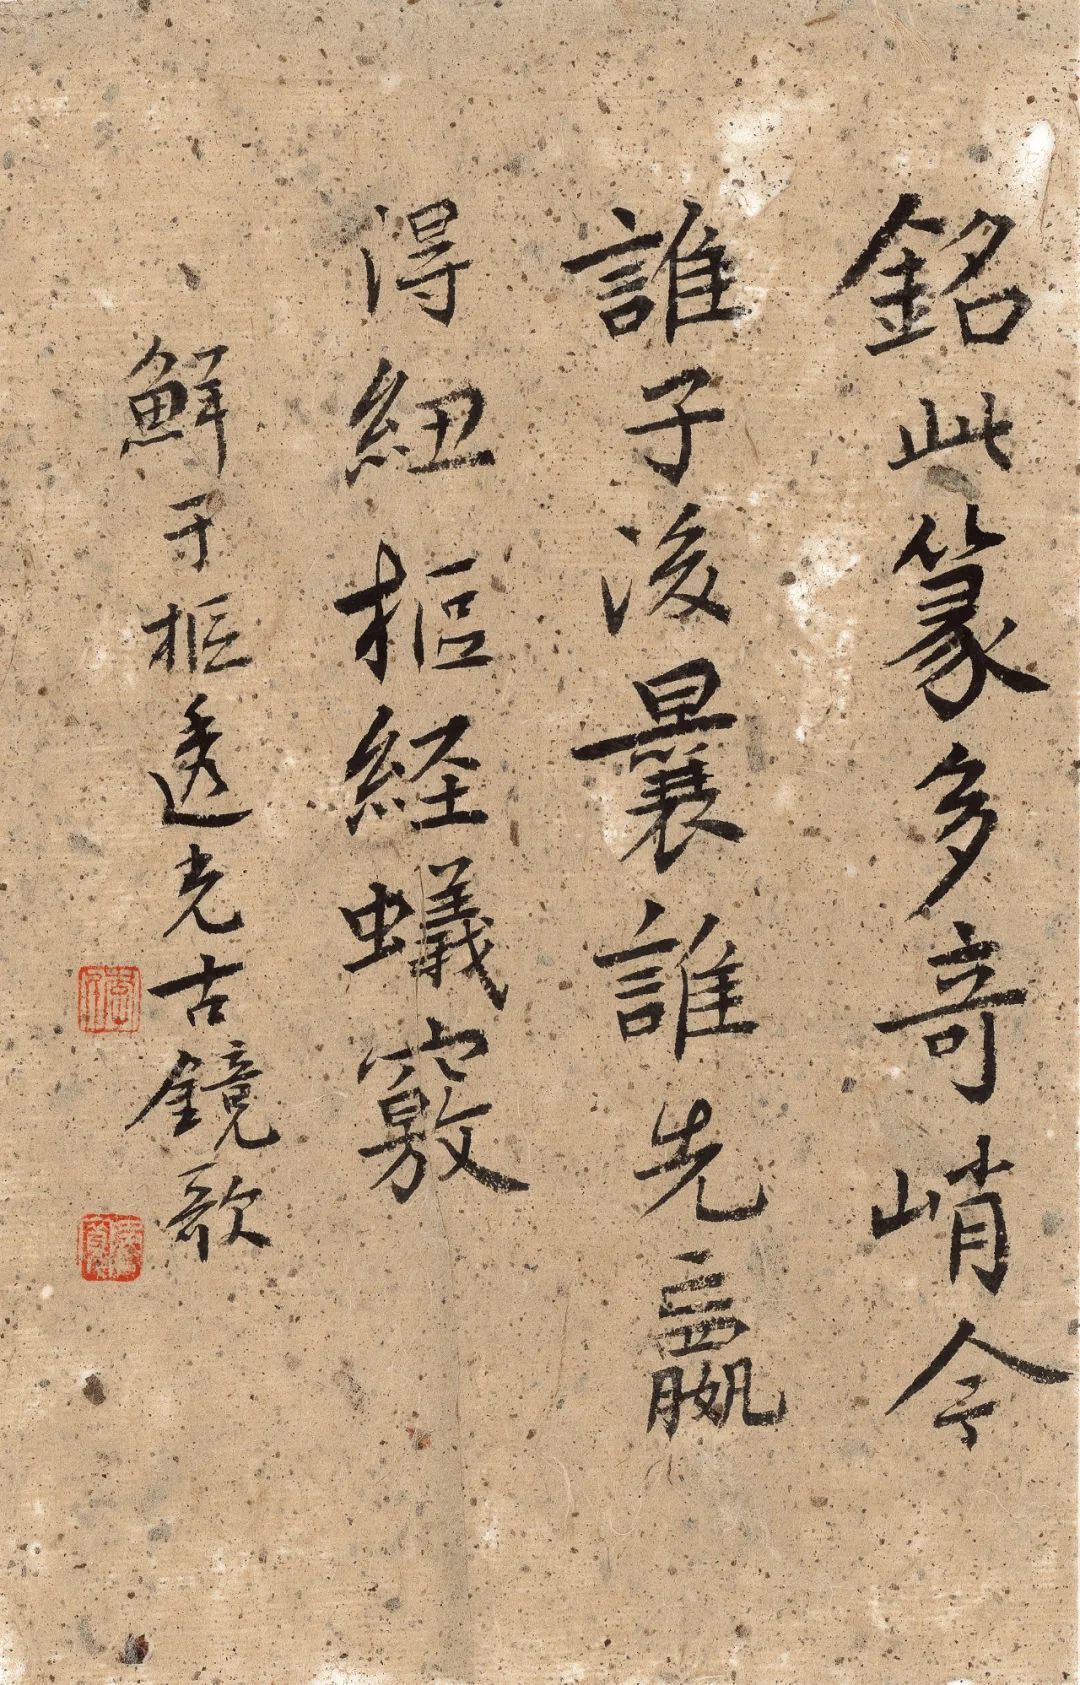 銘此篆多奇峭今
誰子後曩誰先嬴
得紐樞経蟻竅
鮮于樞透光古鏡歌